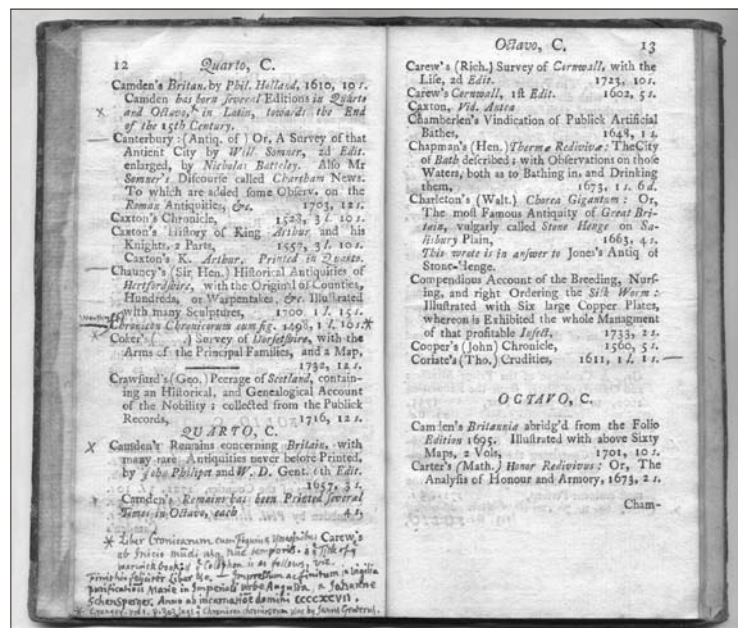 12 Quarto, C.
Camden's Britan. by Phil. Holland, 1610, 10 s.
Camden has born several Editions in Quarto
and Octavo, in Latin, towards the End
of the 15th Century.
Canterbury: (Antiq. of) Or, A Survey of that
Antient City by Will. Somner, 2d Edit.
enlarged, by Nicholas Batteley. Also Mr
Somner's Discourse called Chartham News.
To which are added some Observ. on the
Roman Antiquities, &c. 1703, 12 s.
Caxton's Chronicle, 1528, 3 l. 10 s.
Caxton's History of King Arthur and his
Knights, 2 Parts, 1557, 3 l. 10 s.
Caxton's K. Arthur. Printed in Quarto.
Chauncy's (Sir Hen.) Historical Antiquities of
Hertfordshire, with the Original of Counties,
Hundreds, or Wapentakes, &c. Illustrated
with many Sculptures, 1700 1 l. 15 s.
Chronicon Chronicorum cum fig. 1498, 1 l. 10 s. *
Coker's ( .) Survey of Dorsetshire, with the
Arms of the Principal Families, and a Map,
1732, 12 s.
Crawfurd's (Geo.) Peerage of Scotland, contain-
ing an Historical, and Genealogical Account
of the Nobility; collected from the Publick
Records, 1716, 12 s.
QUARTO, C.
X Camden's Remains concerning Britain, with
many rare Antiquities never before Printed,
by John Philipot and W. D. Gent. 6th Edit.
1657, 3 s.
Camden's Remains has been Printed several
Times in Octavo, each 4 s.
Carew's
* Liber Cronicarum cum figuris
ab Inicio mūdi
Colophon is as follows, viz.
Finit feliciter Liber
purificationis Marie in Imperiali urbe Augusta, a Johanne
Schensperger. Anno ab incarnatiōe domini CCCCXCVII.
Octavo, C. 13
Carew's (Rich.) Survey of Cornwall, with the
Life, 2d Edit. 1723, 10 s.
Carew's Cornwall, 1st Edit. 1602, 5 s.
Caxton, Vid. Antea
Chamberlen's Vindication of Publick Artificial
Bathes, 1648, 1 s.
Chapman's (Hen.) Thermæ Redivivæ: The City
of Bath described; with Observations on those
Waters, both as to Bathing in, and Drinking
them, 1673, 1 s. 6 d.
Charleton's (Walt.) Chorea Gigantum: Or,
The most Famous Antiquity of Great Bri-
tain, vulgarly called Stone Henge on Sa-
lisbury Plain, 1663, 4 s.
This wrote is in answer to Jones's Antiq of
Stone-Henge.
Compendious Account of the Breeding, Nurs-
ing, and right Ordering the Silk Worm:
Illustrated with Six large Copper Plates,
whereon is Exhibited the whole Managment
of that profitable Insect, 1733, 2 s.
Cooper's (John) Chronicle, 1560, 5 s.
Coriate's (Tho.) Crudities, 1611, 1 l. 1 s.
OCTAVO, C.
Camden's Britannia abridg'd from the Folio
Edition 1695. Illustrated with above Sixty
Maps, 2 Vols, 1701, 10 s.
Carter's (Math.) Honor Redivivus: Or, The
Analysis of Honour and Armory, 1673, 2 s.
Cham-